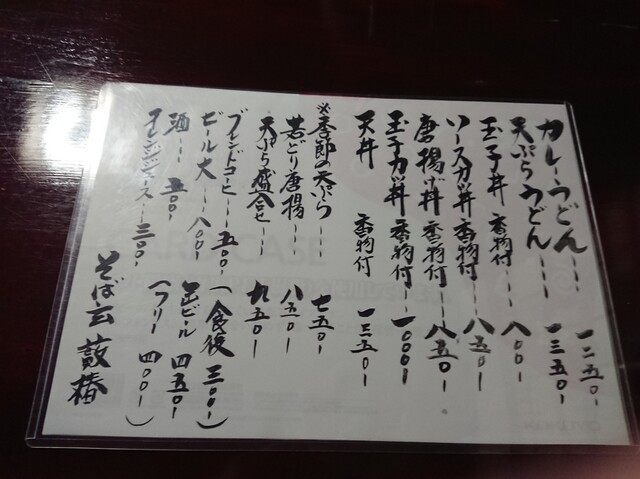 カレーうどん---一二五〇-
天ぷらうどん---一三五〇-
玉子丼 香物付---八〇〇-
ソースカツ丼 香物付---八五〇-
唐揚げ丼 香物付---八五〇-
玉子カツ丼 香物付---一〇〇〇-
天丼 香物付 一三五〇-
※季節の天ぷら---七五〇-
若どり唐揚---八五〇-
天ぷら盛合せ---九五〇-
ブレンドコーヒー---五〇〇-(食後 三〇〇-)
ビール大---八〇〇- 缶ビール 四五〇-
酒---五〇〇- (フリー 四〇〇-)
オレンジジュース---三〇〇-
そば玄 薮椿